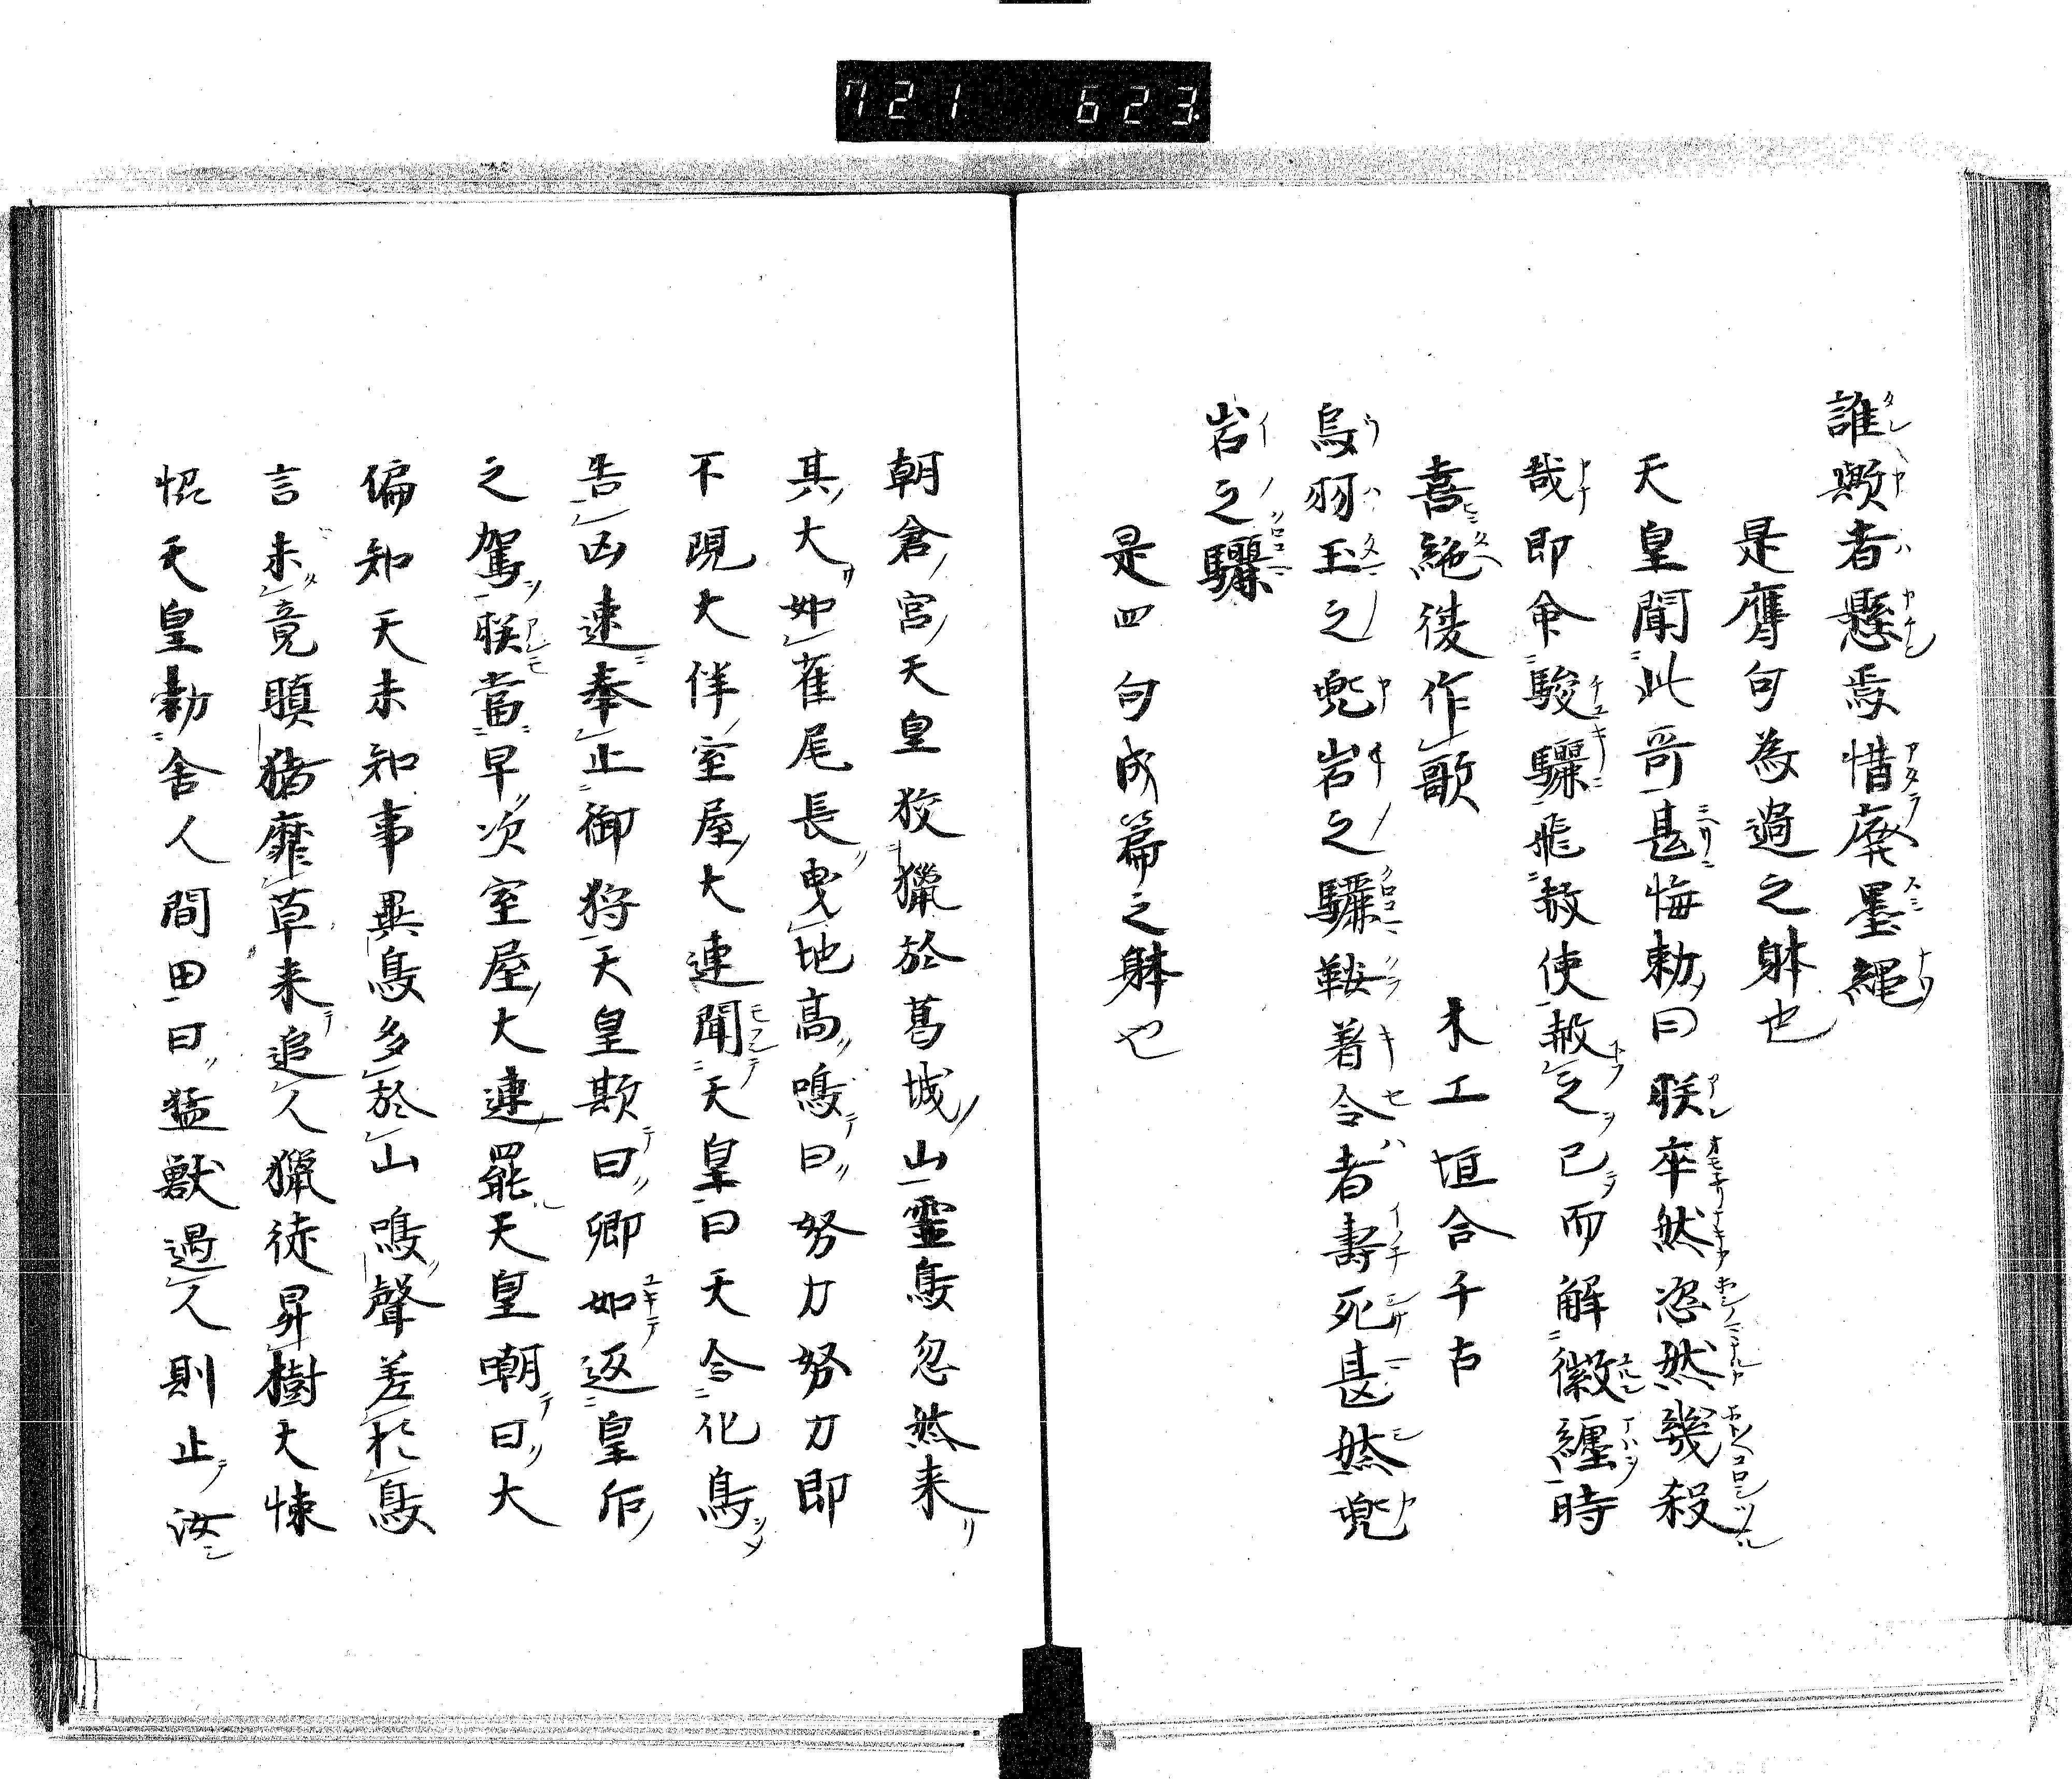 721 623
誰歟者懸焉惜廃墨縄
是膺句為過之躰也
天皇聞此哥甚悔勅曰朕卒然恣然幾殺
哉即命駿驪飛赦使赦之已而解徽纏時
喜絶後作歌 木工垣合千古
烏羽玉之兜岩之驪鞍着令者壽死甚然兜
岩之驪
是四句成篇之躰也
朝倉宮天皇狡獵於葛城山靈鳥忽然来
其大如雀尾長曳地高鳴曰努力努力即
不現大伴室屋大連聞天皇曰天令化鳥
告凶速奉止御狩天皇欺曰卿如返皇后
之駕朕當早次室屋大連罷天皇嘲曰大
偏知天未知事異鳥多於山鳴聲差於鳥
言未竟瞋猪靡草来追人獵徒昇樹大悚
怳天皇勅舍人間田曰猛獣遇人則止汝